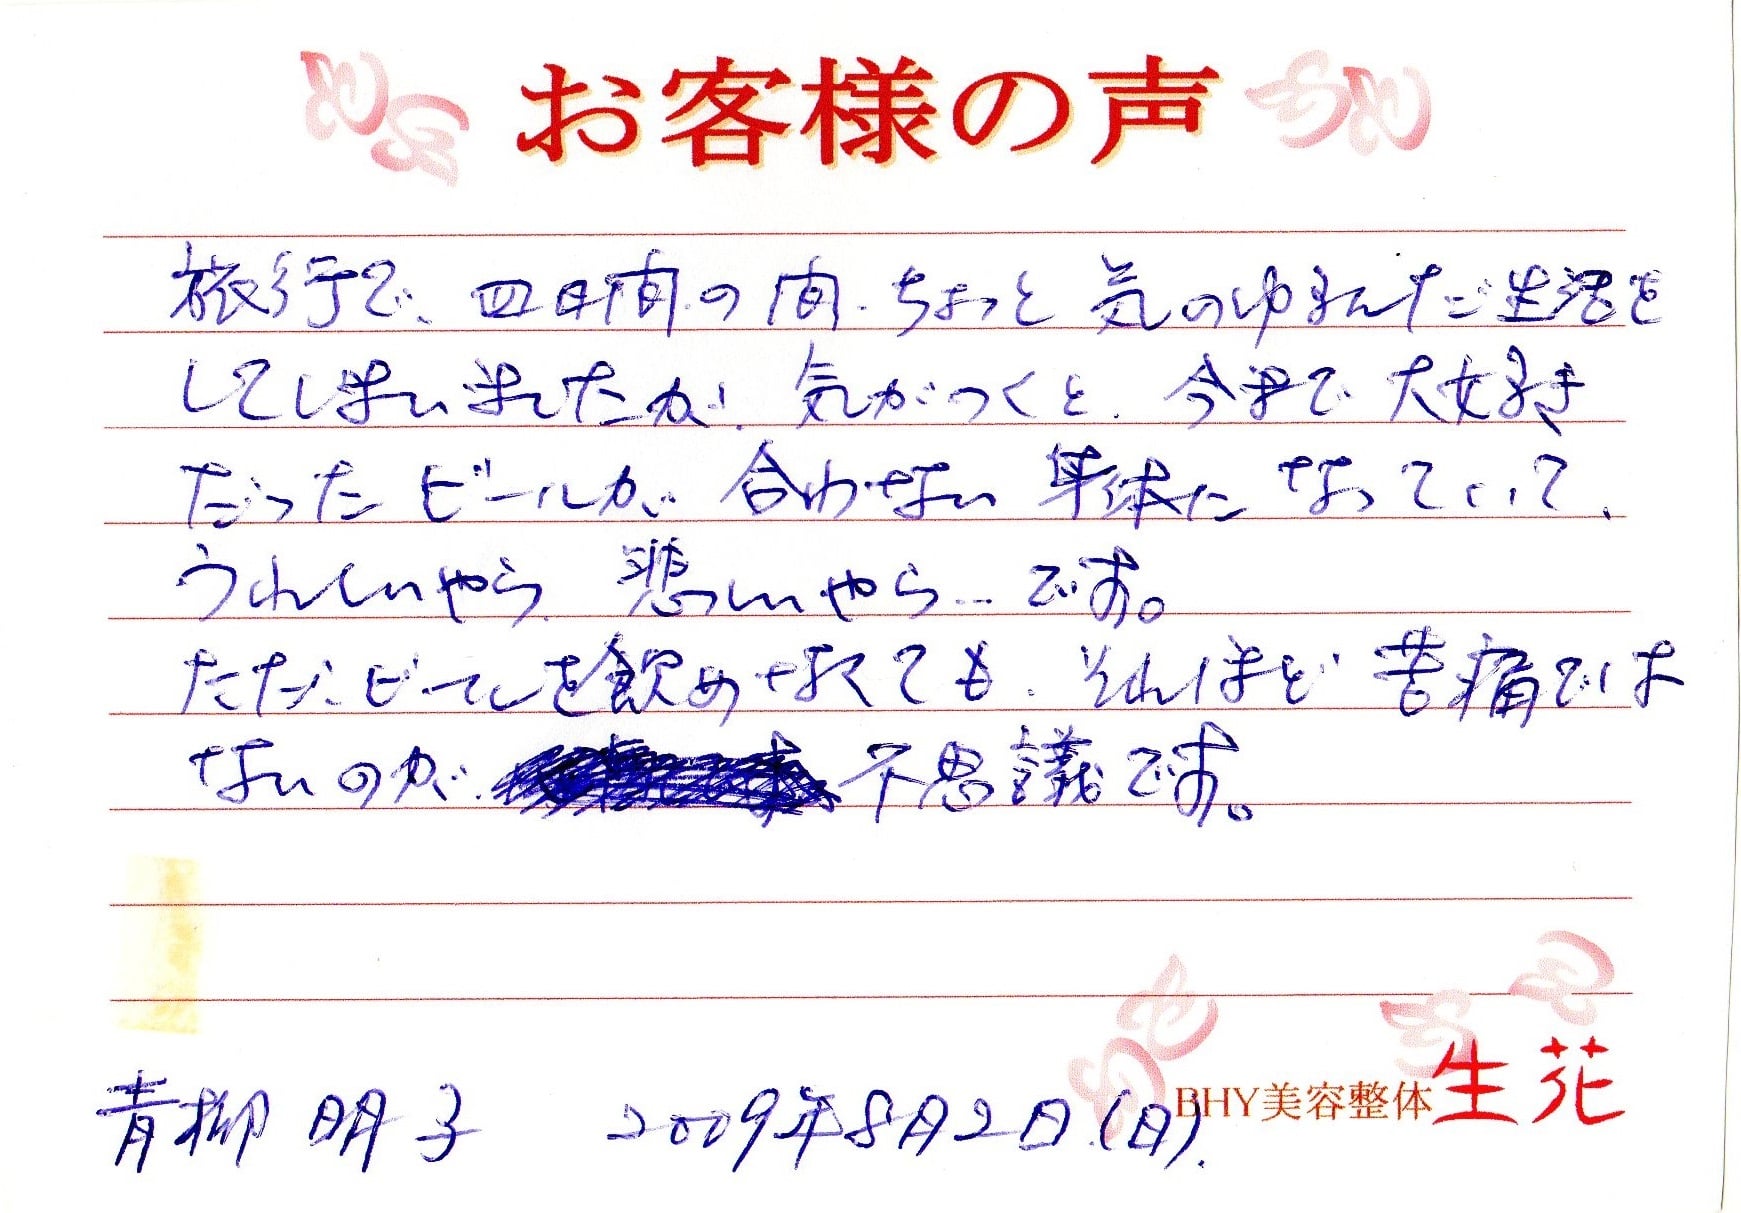 お客様の声
旅行で、四日間の間、ちょっと気のゆるんだ生活を
してしまいましたが、気がつくと、今まで大好き
だったビールが、合わない身体になっていて、
うれしいやら、悲しいやら…です。
ただ、ビールを飲めなくても、それほど苦痛では
ないのが、不思議です。
BHY美容整体 生花
青柳 明子 2009年8月2日(日).